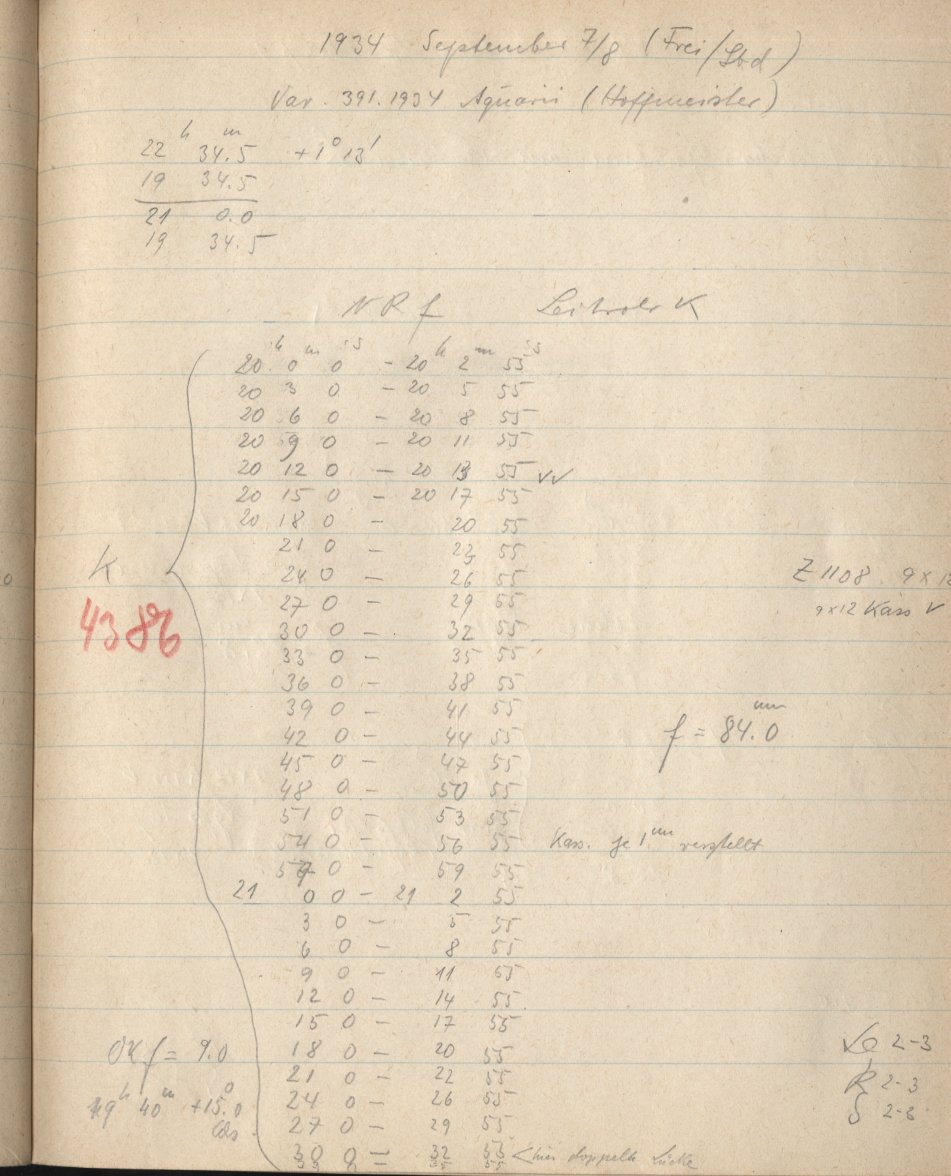 1934 September 7/8 (Frei/Sbd)
Var. 391.1934 Aquarii (Hoffmeister)
22 h 34.5 m +1° 13'
19 34.5
21 0.0
19 34.5
N R f Leitrohr K
20 h 0 m 0 s - 20 h 2 m 55 s
20 3 0 - 20 5 55
20 6 0 - 20 8 55
20 9 0 - 20 11 55
20 12 0 - 20 13 55 √√
20 15 0 - 20 17 55
20 18 0 - 20 55
21 0 - 23 55
K 24 0 - 26 55 Z 1108 9x12
27 0 - 29 55 9x12 Kass V
4386 30 0 - 32 55
33 0 - 35 55
36 0 - 38 55
39 0 - 41 55
42 0 - 44 55 f = 84.0 mm
45 0 - 47 55
48 0 - 50 55
51 0 - 53 55
54 0 - 56 55 Kass. je 1 mm verstellt
57 0 - 59 55
21 0 0 - 21 2 55
3 0 - 5 55
6 0 - 8 55
9 0 - 11 55
12 0 - 14 55
15 0 - 17 55
f = 9.0 18 0 - 20 55 2-3
21 0 - 22 55 R 2-3
19 h 40 m +15.0° 24 0 - 26 55 S 2-3
27 0 - 29 55
30 0 - 32 55 < hier doppelte Lücke